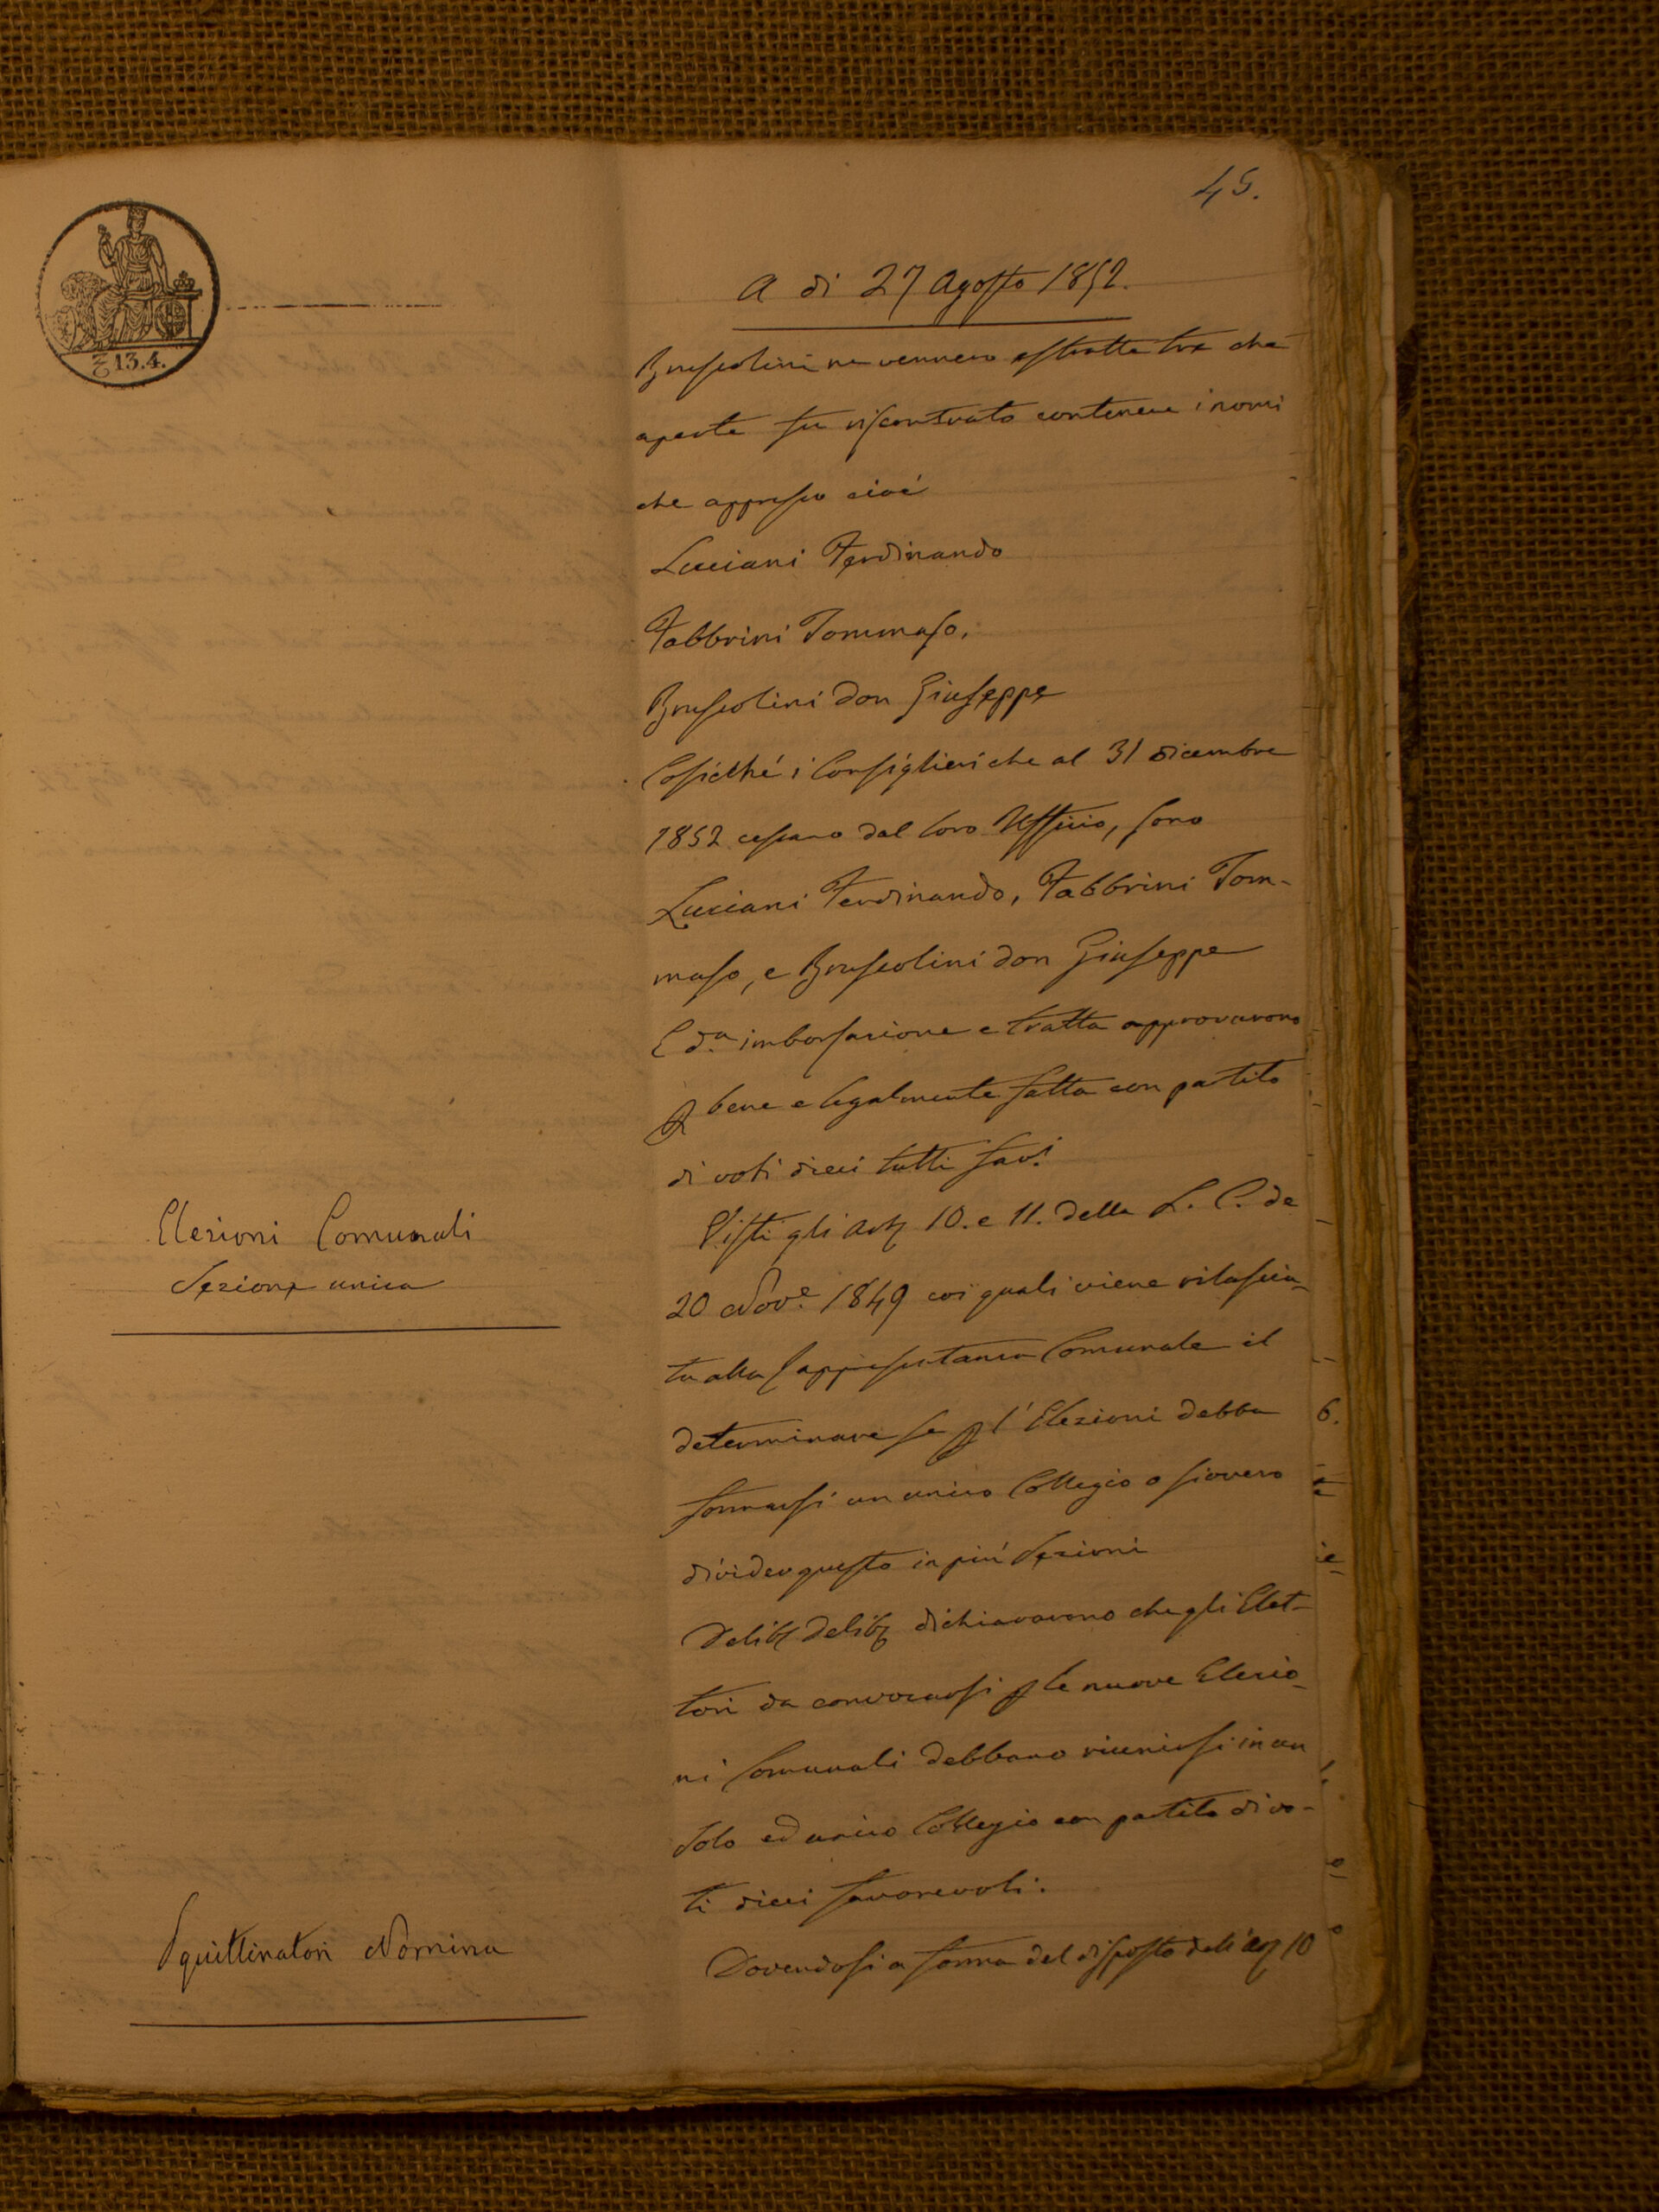 45.
13.4.
A di 27 Agosto 1852.
Bruscolini ne vennero estratte tre che
aperte fu riscontrato contenere i nomi
che appresso cioè
Luciani Ferdinando
Fabbrini Tommaso,
Bruscolini don Giuseppe
Cosicché i Consiglieri che al 31 dicembre
1852 cessano dal loro Uffizio, sono
Luciani Ferdinando, Fabbrini Tom-
maso, e Bruscolini don Giuseppe
E d.a imborsazione e tratta approvarono
bene e legalmente fatta con partito
di voti dieci tutti fav.i
Elezioni Comunali
Sezione unica
Visti gli Art 10. e 11. della L. C. de
20 Nov.e 1849 coi quali viene rilascia-
to alla Rappresentanza Comunale il
determinare se p l'Elezioni debba
formarsi un unico Collegio o sivvero
divider questo in più Sezioni
Delib Delib dichiararono che gli Elet-
tori da convocarsi p le nuove Elezio-
ni Comunali debbano riunirsi in un
Solo ed unico Collegio con partito di vo-
ti dieci favorevoli.
Squittinatori Nomina
Dovendosi a forma del disposto dell'Art 10